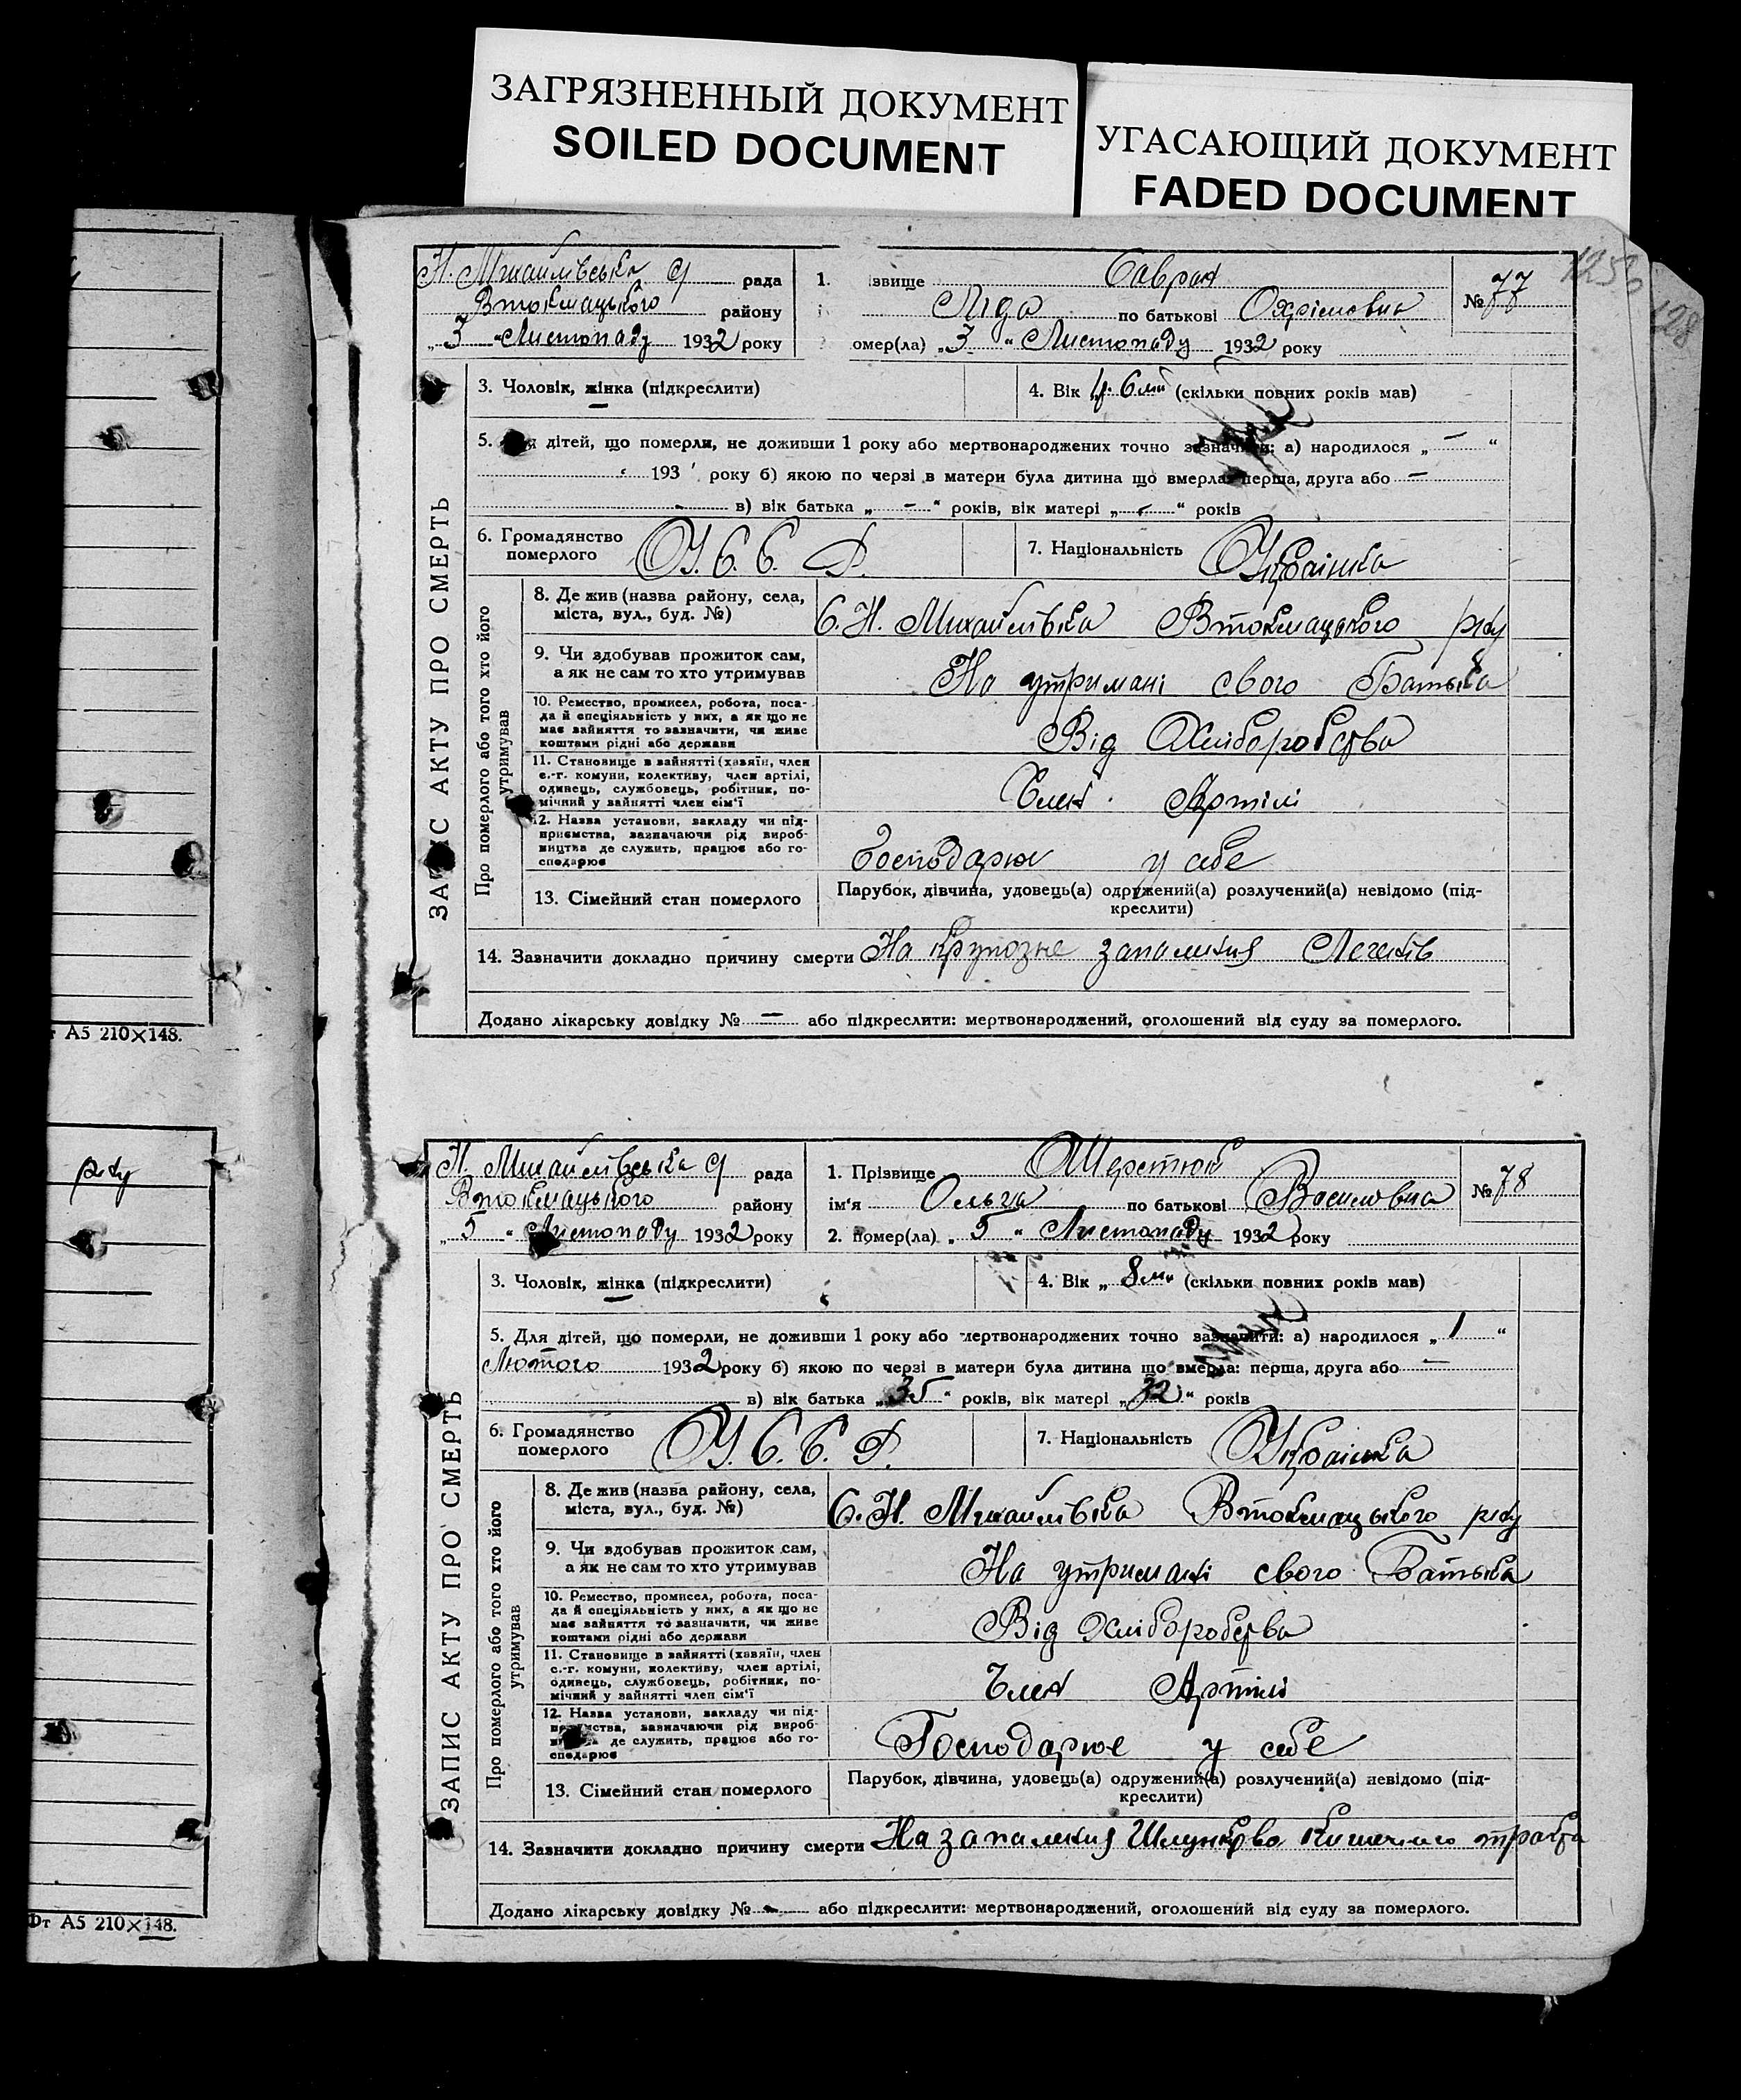 ЗАГРЯЗНЕННЫЙ ДОКУМЕНТ
SOILED DOCUMENT
УГАСАЮЩИЙ ДОКУМЕНТ
FADED DOCUMENT
А5 210×148.
рну
Фт А5 210×148.
128
ЗАПИС АКТУ ПРО СМЕРТЬ
Н. Михайлівська с/ рада
Втокмацького району
„3“ Листопаду 1932 року
1. звище Савран
Ліда по батькові Охрімовна
омер(ла) „3“ Листопаду 1932 року
№ 77
3. Чоловік, жінка (підкреслити)
4. Вік (скільки повних років мав)
5. дітей, що померли, не доживши 1 року або мертвонароджених точно зазначити: а) народилося „—“
193 року б) якою по черзі в матери була дитина що вмерла: перша, друга або —
в) вік батька „-“ років, вік матері „-“ років
6. Громадянство померлого У.С.С.Р.
7. Національність Українка
Про померлого або того хто його утримував
8. Де жив (назва району, села, міста, вул., буд. №) С. Н. Михайлівка Втокмацького р-ну
9. Чи здобував прожиток сам, а як не сам то хто утримував На утримані свого Батька
10. Ремество, промисел, робота, посада й спеціяльність у них, а як що не має зайняття то зазначити, чи живе коштами рідні або держави Від Хліборобства
11. Становище в зайнятті (хазяїн, член с.-г. комуни, колективу, член артілі, одинець, службовець, робітник, помічний у зайнятті член сім'ї Член Артілі
12. Назва установи, закладу чи підприємства, зазначаючи рід виробництва де служить, працює або господарює Господарює у себе
13. Сімейний стан померлого Парубок, дівчина, удовець(а) одружений(а) розлучений(а) невідомо (підкреслити)
14. Зазначити докладно причину смерти На крупозне запаления Легенів
Додано лікарську довідку № — або підкреслити: мертвонароджений, оголошений від суду за померлого.
ЗАПИС АКТУ ПРО СМЕРТЬ
Н. Михайлівська с/ рада
Втокмацького району
„5“ Листопаду 1932 року
1. Прізвище Шерстюк
ім'я Ольга по батькові Василовна
2. помер(ла) „5“ Листопаду 1932 року
№ 78
3. Чоловік, жінка (підкреслити)
4. Вік „8 мц (скільки повних років мав)
5. Для дітей, що померли, не доживши 1 року або мертвонароджених точно зазначити: а) народилося „1“
Лютого 1932 року б) якою по черзі в матери була дитина що вмерла: перша, друга або —
в) вік батька „35“ років, вік матері „32“ років
6. Громадянство померлого У.С.С.Р.
7. Національність Українка
Про померлого або того хто його утримував
8. Де жив (назва району, села, міста, вул., буд. №) С. Н. Михайлівка Втокмацького р-ну
9. Чи здобував прожиток сам, а як не сам то хто утримував На утримані свого Батька
10. Ремество, промисел, робота, посада й спеціяльність у них, а як що не має зайняття то зазначити, чи живе коштами рідні або держави Від Хліборобства
11. Становище в зайнятті (хазяїн, член с.-г. комуни, колективу, член артілі, одинець, службовець, робітник, помічний у зайнятті член сім'ї Член Артілі
12. Назва установи, закладу чи підприємства, зазначаючи рід виробництва де служить, працює або господарює Господарює у себе
13. Сімейний стан померлого Парубок, дівчина, удовець(а) одружений(а) розлучений(а) невідомо (підкреслити)
14. Зазначити докладно причину смерти На запаления Шлунково Кишечного тракта
Додано лікарську довідку № - або підкреслити: мертвонароджений, оголошений від суду за померлого.